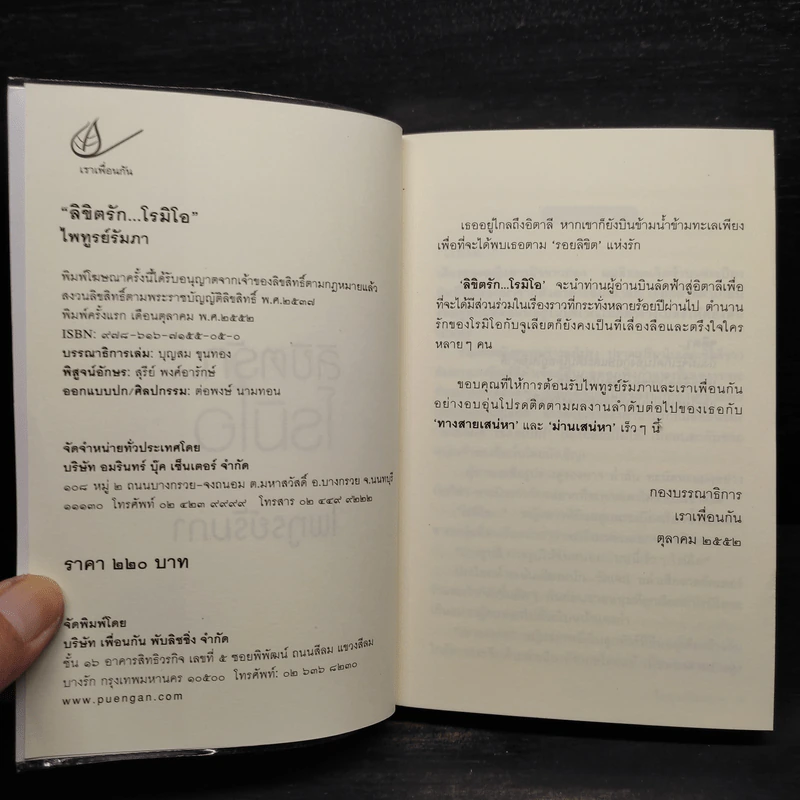 เราเพื่อนกัน
“ลิขิตรัก...โรมิโอ”
ไพฑูรย์รัมภา
พิมพ์โฆษณาครั้งนี้ได้รับอนุญาตจากเจ้าของลิขสิทธิ์ตามกฎหมายแล้ว
สงวนลิขสิทธิ์ตามพระราชบัญญัติลิขสิทธิ์ พ.ศ.๒๕๓๗
พิมพ์ครั้งแรก เดือนตุลาคม พ.ศ.๒๕๕๒
ISBN: ๙๗๘-๖๑๖-๗๑๕๕-๐๕-๐
บรรณาธิการเล่ม: บุญสม ขุนทอง
พิสูจน์อักษร: สุรีย์ พงศ์อารักษ์
ออกแบบปก/ศิลปกรรม: ต่อพงษ์ นามทอน
จัดจำหน่ายทั่วประเทศโดย
บริษัท อมรินทร์ บุ๊ค เซ็นเตอร์ จำกัด
๑๐๘ หมู่ ๒ ถนนบางกรวย-จงถนอม ต.มหาสวัสดิ์ อ.บางกรวย จ.นนทบุรี
๑๑๑๓๐ โทรศัพท์ ๐๒ ๔๒๓ ๙๙๙๙ โทรสาร ๐๒ ๔๔๙ ๙๒๒๒
ราคา ๒๒๐ บาท
จัดพิมพ์โดย
บริษัท เพื่อนกัน พับลิชชิ่ง จำกัด
ชั้น ๑๖ อาคารสิทธิวรกิจ เลขที่ ๕ ซอยพิพัฒน์ ถนนสีลม แขวงสีลม
บางรัก กรุงเทพมหานคร ๑๐๕๐๐ โทรศัพท์: ๐๒ ๖๓๖ ๘๒๓๐
www.puengan.com
เธออยู่ไกลถึงอิตาลี หากเขาก็ยังบินข้ามน้ำข้ามทะเลเพียง
เพื่อที่จะได้พบเธอตาม ‘รอยลิขิต’ แห่งรัก
‘ลิขิตรัก...โรมิโอ’ จะนำท่านผู้อ่านบินลัดฟ้าสู่อิตาลีเพื่อ
ที่จะได้มีส่วนร่วมในเรื่องราวที่กระทั่งหลายร้อยปีผ่านไป ตำนาน
รักของโรมิโอกับจูเลียตก็ยังคงเป็นที่เลื่องลือและตรึงใจใคร
หลายๆ คน
ขอบคุณที่ให้การต้อนรับไพฑูรย์รัมภาและเราเพื่อนกัน
อย่างอบอุ่นโปรดติดตามผลงานลำดับต่อไปของเธอกับ
‘ทางสายเสน่หา’ และ ‘ม่านเสน่หา’ เร็วๆ นี้
กองบรรณาธิการ
เราเพื่อนกัน
ตุลาคม ๒๕๕๒